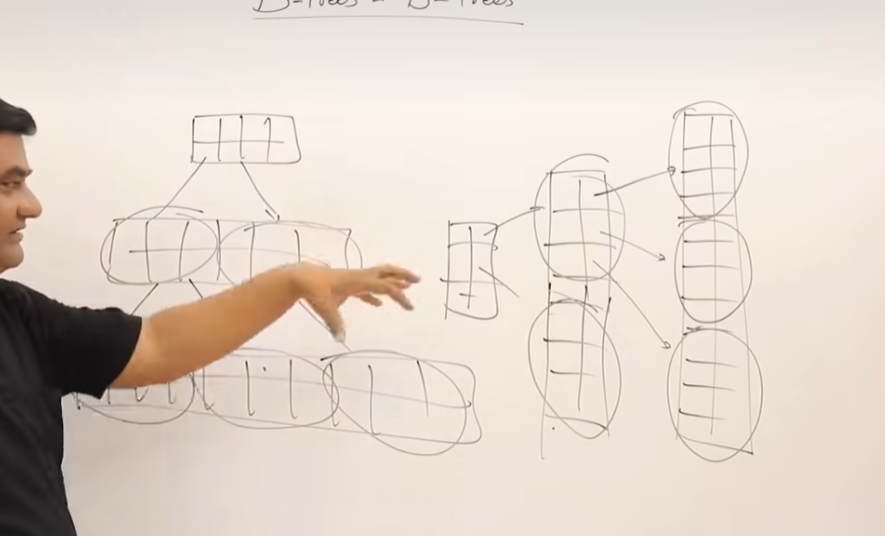 B-Trees - B-Trees